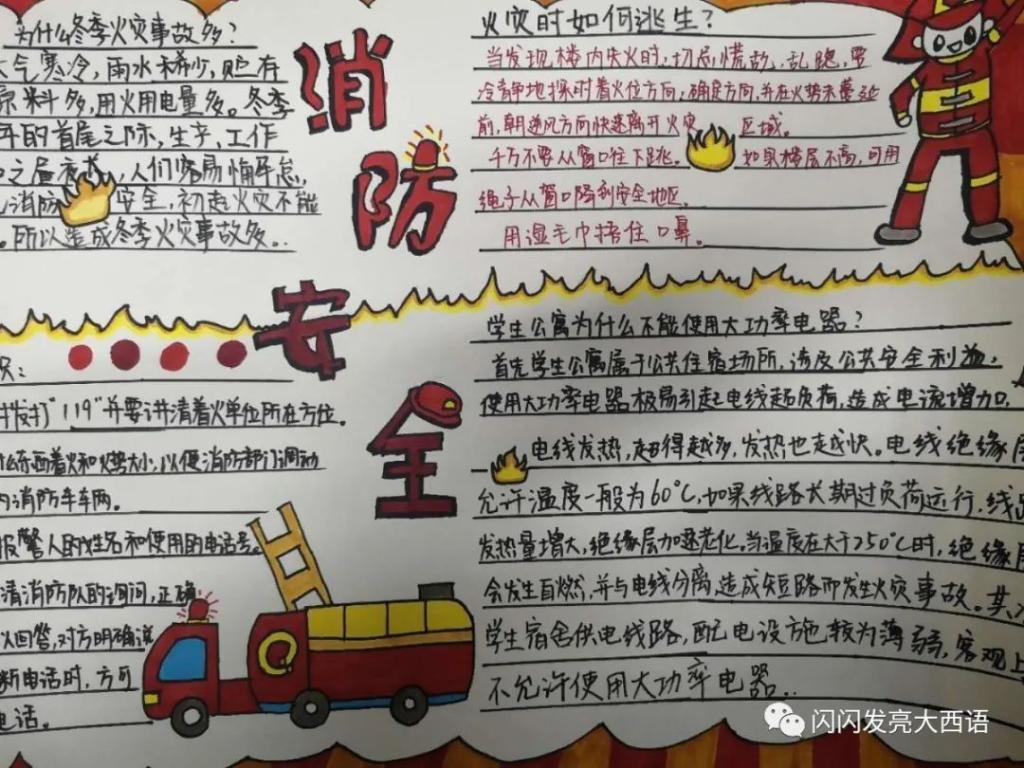 为什么冬季火灾事故多?
天气寒冷,雨水稀少,贮存
原料多,用火用电量多。冬季
年的首尾之际,生产、工作
人们容易懈怠,
消防安全,初起火灾不能
。所以造成冬季火灾事故多。
消防安全
火灾时如何逃生?
当发现楼内失火时,切忌慌故、乱跑,要
冷静地探时着火位方向,确定方向,并在火势未蔓延
前,朝逆风方向快速离开火灾区域。
千万不要从窗口往下跳。如果楼层不高,可用
绳子从窗口降到安全地区。
用湿毛巾捂住口鼻。
识:
拨打"119"并要讲清着火单位所在方位。
什么东西着火和火势大小,以便消防部门调动
内消防车车辆。
报警人的姓名和使用的电话号。
清消防队的询问,正确
以回答,对方明确说
断电话时,方可
电话。
学生公寓为什么不能使用大功率电器?
首先学生公寓属于公共住宿场所,涉及公共安全利益,
使用大功率电器极易引起电线起负荷,造成电流增加,
电线发热,超得越多,发热也越快。电线绝缘层
允许温度一般为60℃,如果线路长期过负荷运行,线路
发热量增大,绝缘层加速老化。当温度在大于250℃时,绝缘层
会发生自燃,并与电线分离,造成短路而发生火灾事故。其次
学生宿舍供电线路,配电设施较为薄弱,客观上
不允许使用大功率电器。
闪闪发亮大西语